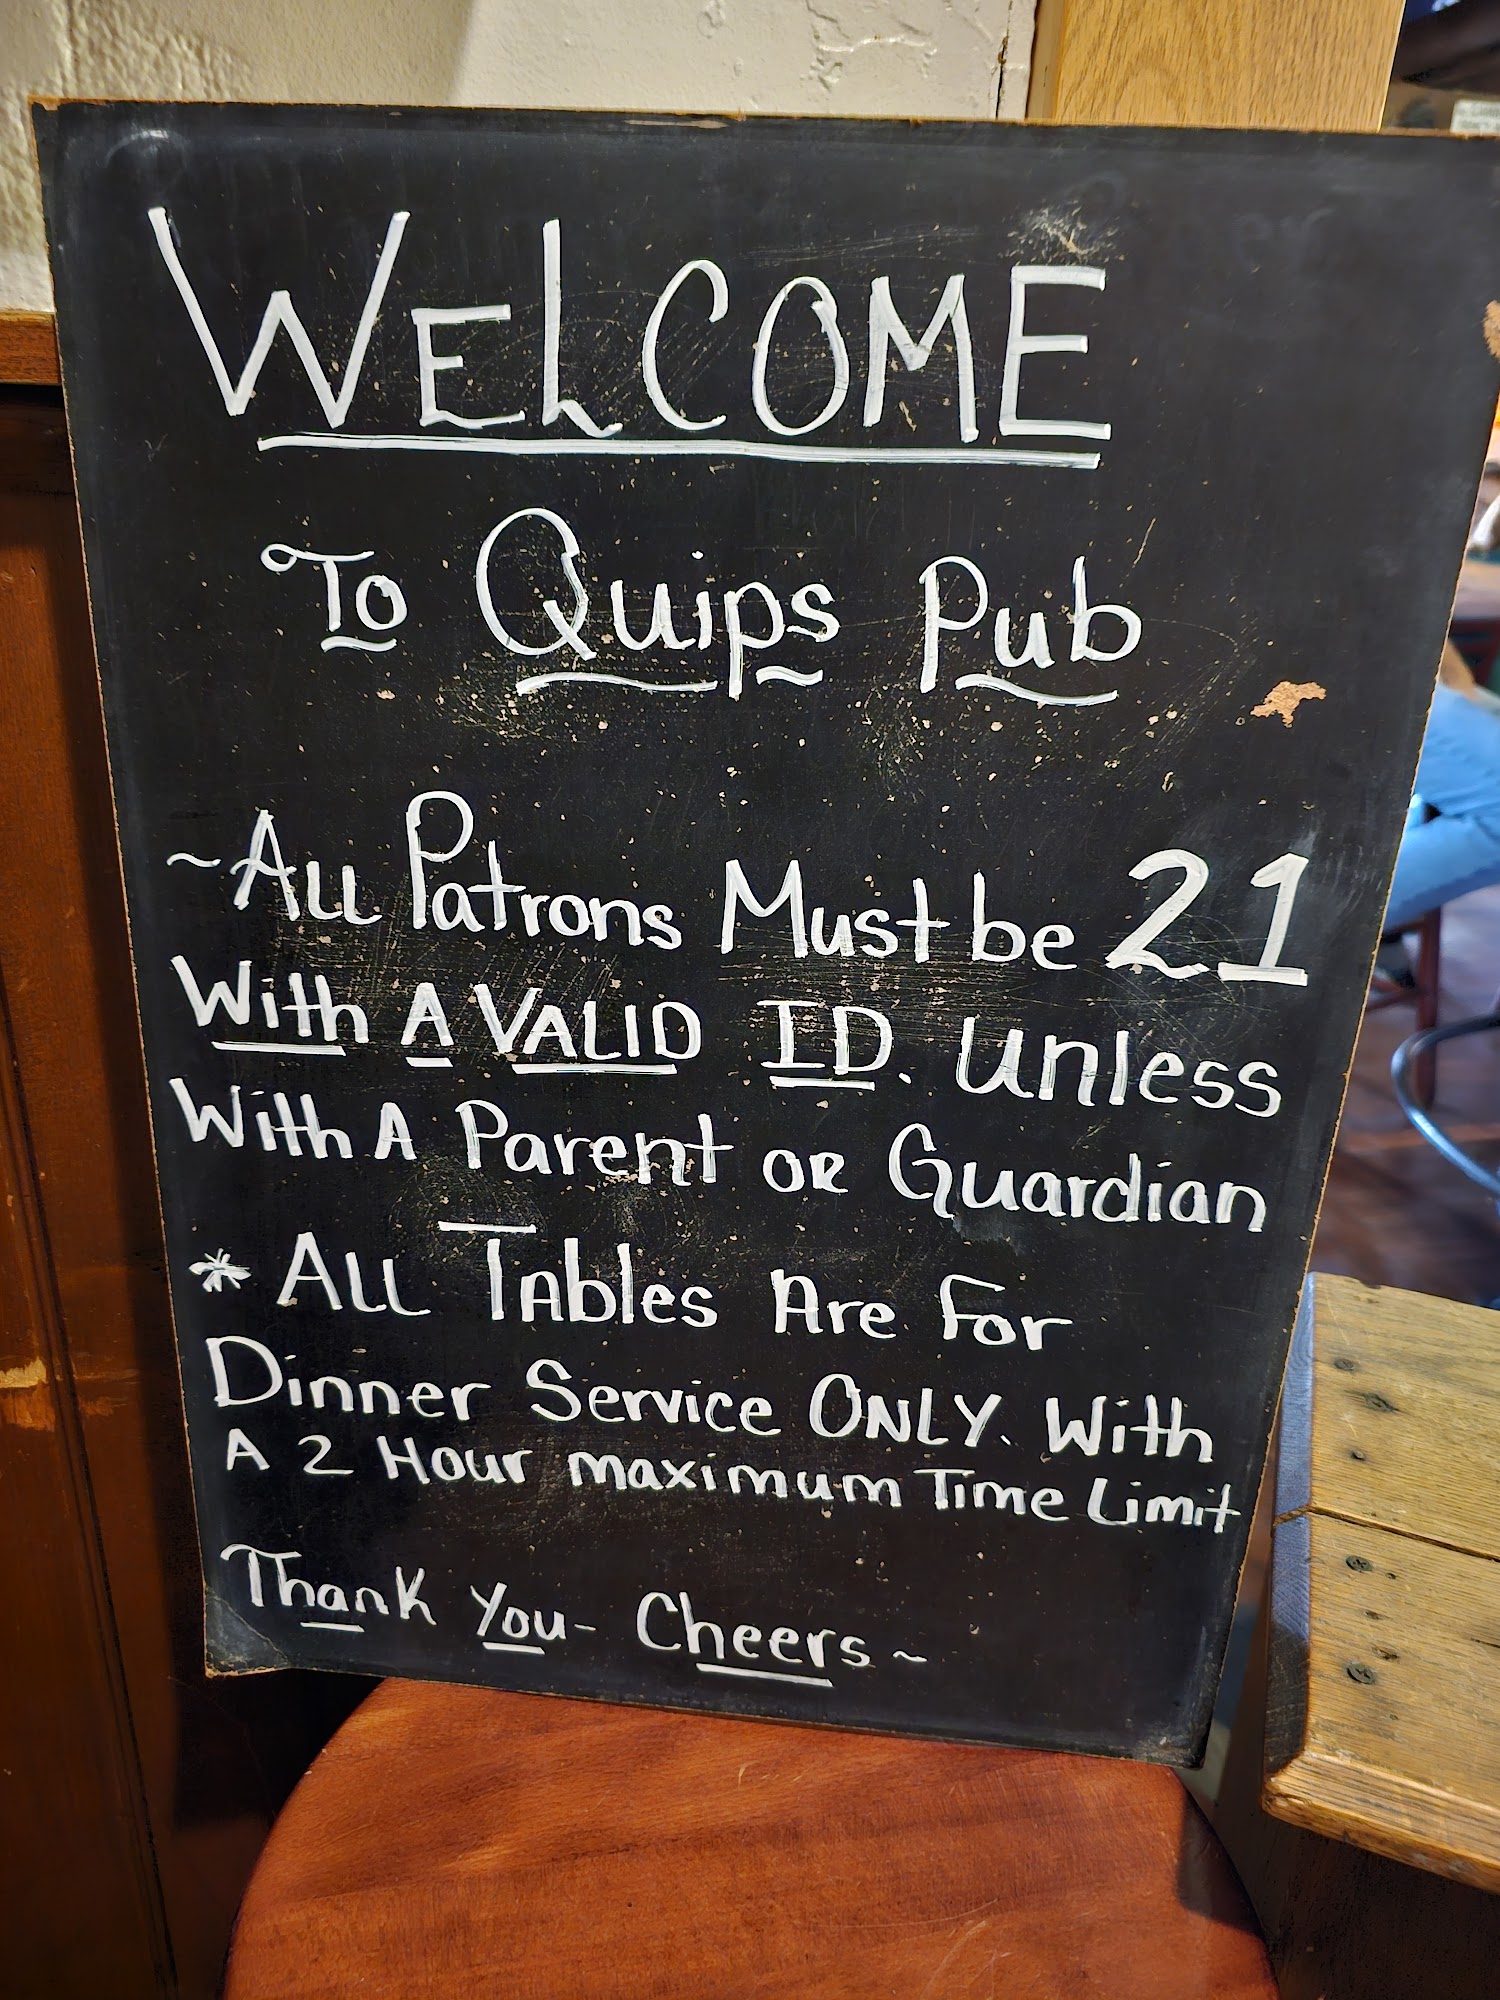 WELCOME
To Quips Pub
~All Patrons Must be 21
With A VALID ID. Unless
With A Parent OR Guardian
* All Tables Are For
Dinner Service ONLY. With
A 2 Hour maximum Time Limit
Thank You- Cheers~